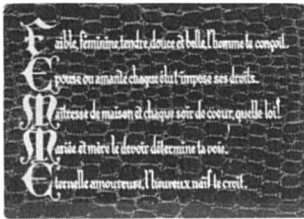 Faible, féminine, tendre, douce et belle, l'homme le conçoit.
Epouse ou amante chaque état impose ses droits.
Maîtresse de maison et chaque soir de coeur, quelle loi!
Mariée et mère le devoir détermine ta voie.
Eternelle amoureuse, l'heureux naïf le croit.